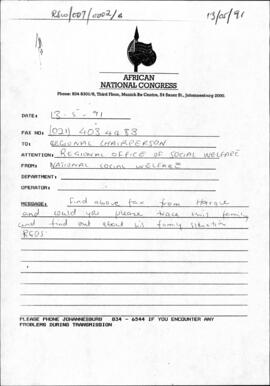 R600/007/0002/6
13/05/91
AFRICAN
NATIONAL CONGRESS
Phone: 834-5301/8, Third Floor, Munich Re Centre, 54 Sauer St., Johannesburg 2000.
DATE: 13-5-91
FAX NO: (021) 403 4283
TO: REGIONAL CHAIRPERSON
ATTENTION: REGIONAL OFFICE OF SOCIAL WELFARE
FROM: NATIONAL SOCIAL WELFARE
DEPARTMENT:
OPERATOR:
MESSAGE: Find above fax from Harare
and would you please trace this family
and find out about his family situation
RGDS
PLEASE PHONE JOHANNESBURG 834 - 6544 IF YOU ENCOUNTER ANY
PROBLEMS DURING TRANSMISSION